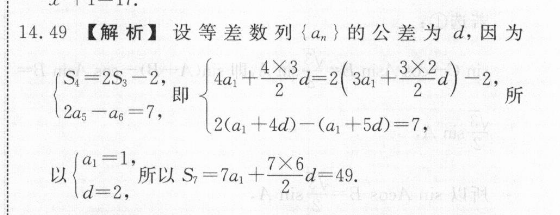 14.49 【解析】 设等差数列{aₙ}的公差为 d,因为
{S₄=2S₃-2, 2a₅-a₆=7, 即 {4a₁+\frac{4×3}{2}d=2(3a₁+\frac{3×2}{2}d)-2, 2(a₁+4d)-(a₁+5d)=7, 所
以{a₁=1, d=2, 所以 S₇=7a₁+\frac{7×6}{2}d=49.